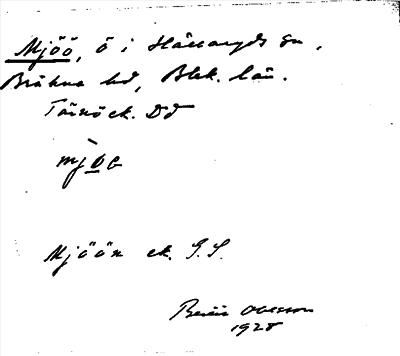 Mjöö, ö i Hällaryds sn,
Bräkne hd, Blek. län.
Tärnö ek. Dd
mjöö
Mjöön ek. G.S.
Olsson
1928